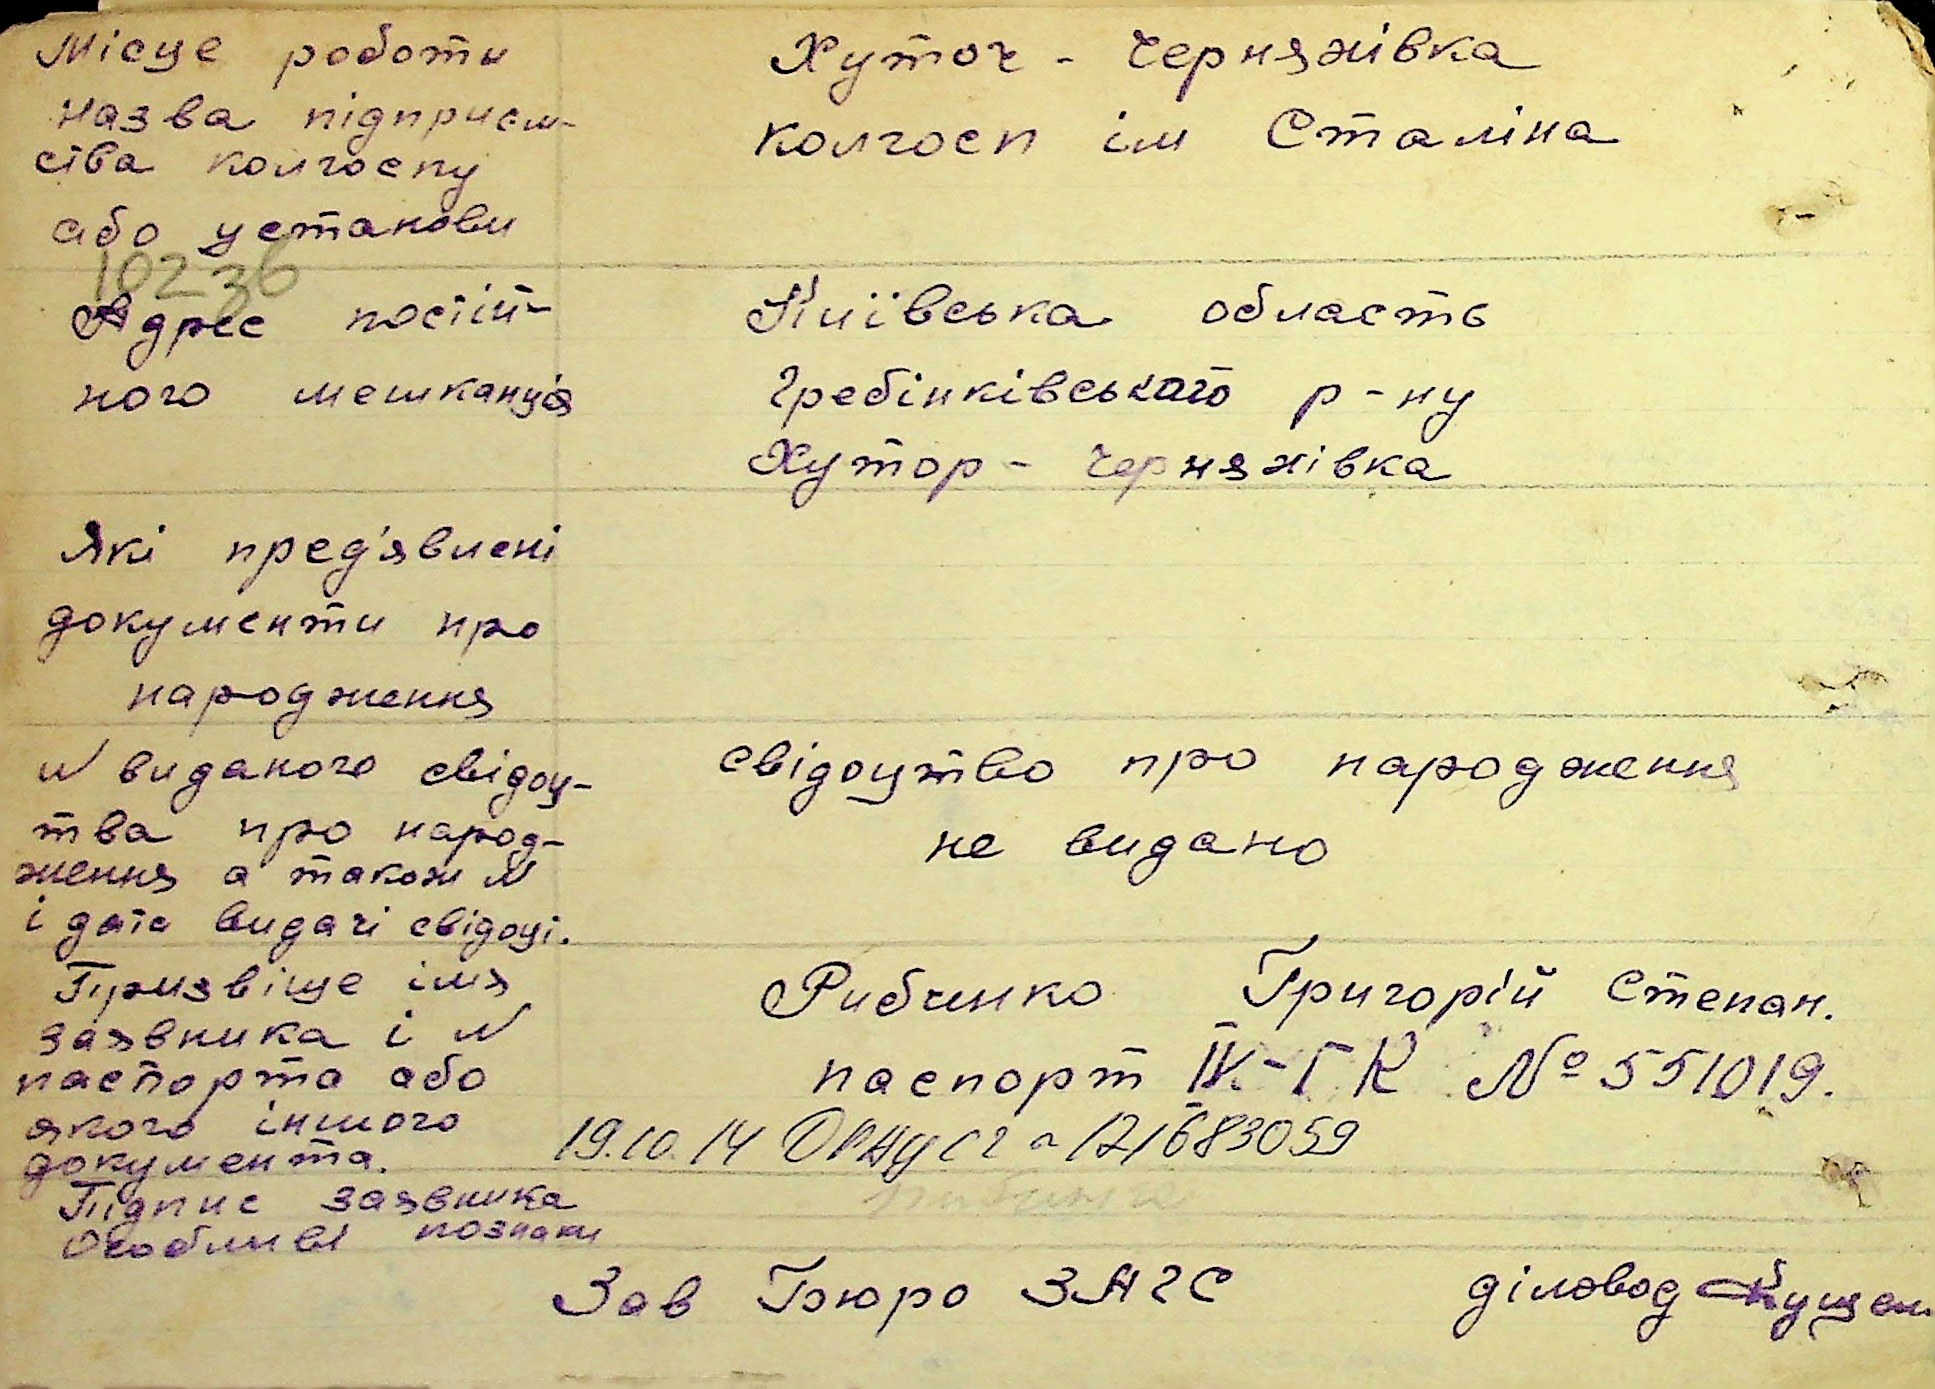 Місце роботи
назва підприєм-
ства колгоспу
або установи
Хуточ - Черняхівка
колгосп ім Сталіна
10236
Адрес постій-
ного мешканця
Київська область
Гребінківського р-ну
Хутор - Черняхівка
Які пред'явлені
документи про
народження
N виданого свідоц-
тва про народ-
ження а також N
і дата видачі свідоц.
свідоцтво про народження
не видано
Призвіще імя
заявника і N
паспорта або
якого іншого
документа.
Рибчинко Григорій Степан.
паспорт IV-ГК № 551019.
19.10.14
Підпис заявника
Особливі познаки
Зав Бюро ЗАГС
діловод